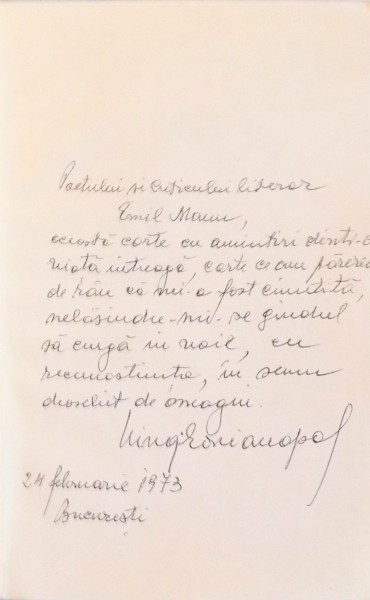 Poetului si criticului literar
Emil Manu,
această carte cu amintiri dintr-o
viață intreagă, carte ce am părerea
de rău că mi-a fost ciuntită,
nelăsindu-mi-se gindul
să curgă in voie, cu
recunostinta, in semn
deosebit de omagiu.
24 februarie 1973
București